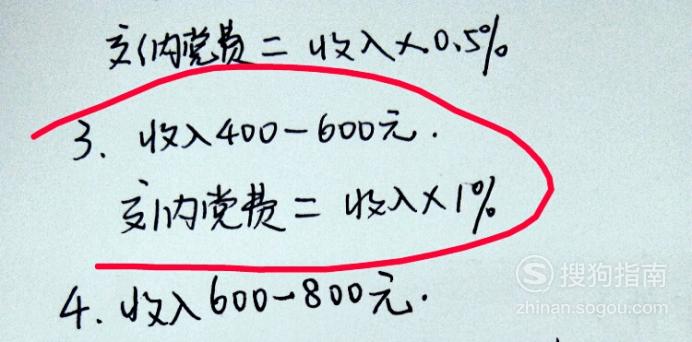 交纳党费=收入×0.5%
3、收入400-600元.
交纳党费=收入×1%
4.收入600-800元.
S搜狗指南
zhinan.sogou.com